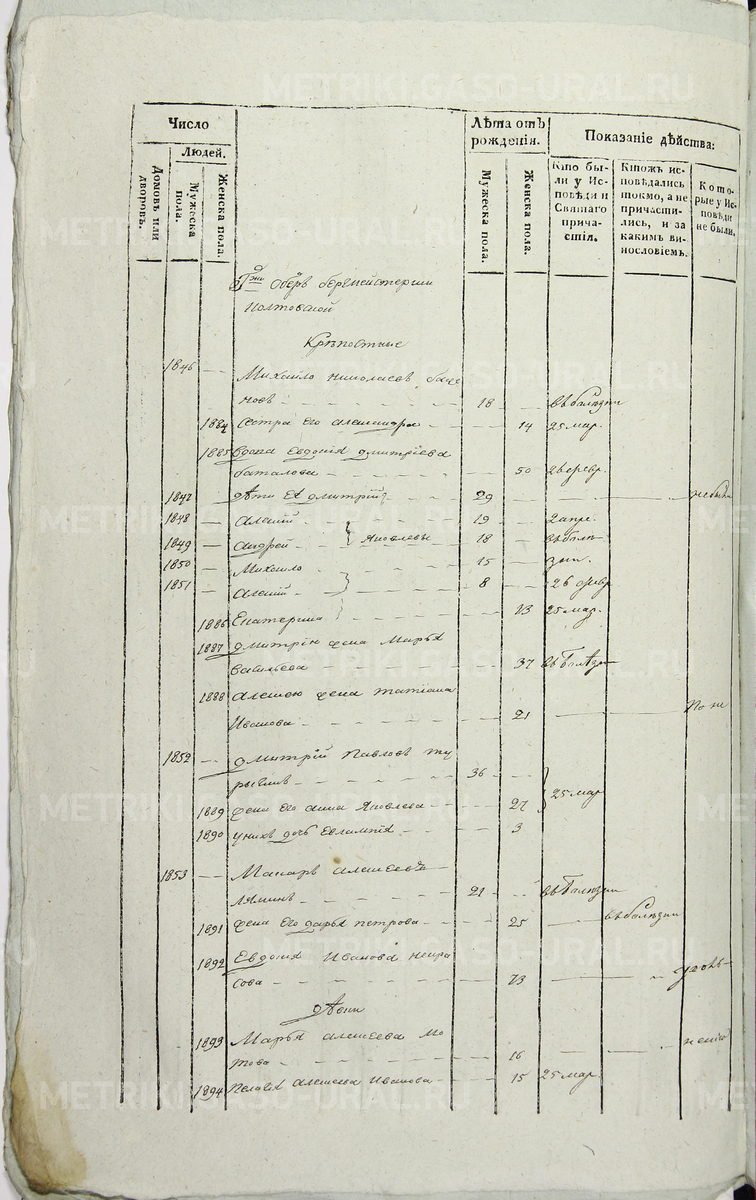 METRIKI.GASO-URAL.RU
Число
Людей.
Домовъ или дворовъ.
Мужеска пола.
Женска пола.
Лѣта отъ рожденія.
Мужеска пола.
Женска пола.
Показаніе дѣйства:
Кто были у Исповѣди и Святаго причастія.
Ктожъ исповѣдались токмо, а не причастились, и за какимъ винословіемъ.
Которые у Исповѣди не были.
Гжи Оберъ бергмейстерши
Полтовской
Крѣпостные
1846 Михайло Николаевъ
18 въ болѣзни
1884 сестра его александра 14 25 мар.
1885 вдова Евдокія дмитріева
баталова 50
1847 дѣти Ея дмитрій 29 не былъ
1848 алексій 19 2 апре.
1849 андрей Яковлевы 18 въ болѣ-
1850 Михайло 15 зни.
1851 алексій 8 26 февр
1886 Екатерина 13 25 мар.
1887 дмитрія жена Марья
васильева 37 въ болѣзни
1888 алексѣю жена татіана
Иванова 21
1852 дмитрій Павловъ
36
25 мар
1889 жена его анна Яковлева 27
1890 у нихъ дочь Евлампія 3
1853 Макаръ алексѣевъ
ляминъ 21 въ болѣзни
1891 жена Его дарья петрова 25 въ болѣзни
1892 Евдокія Иванова некра
сова 73
дѣвки
1893 Марья алексѣева
това 16
1894 Пелагея алексѣева Иванова 15 25 мар.